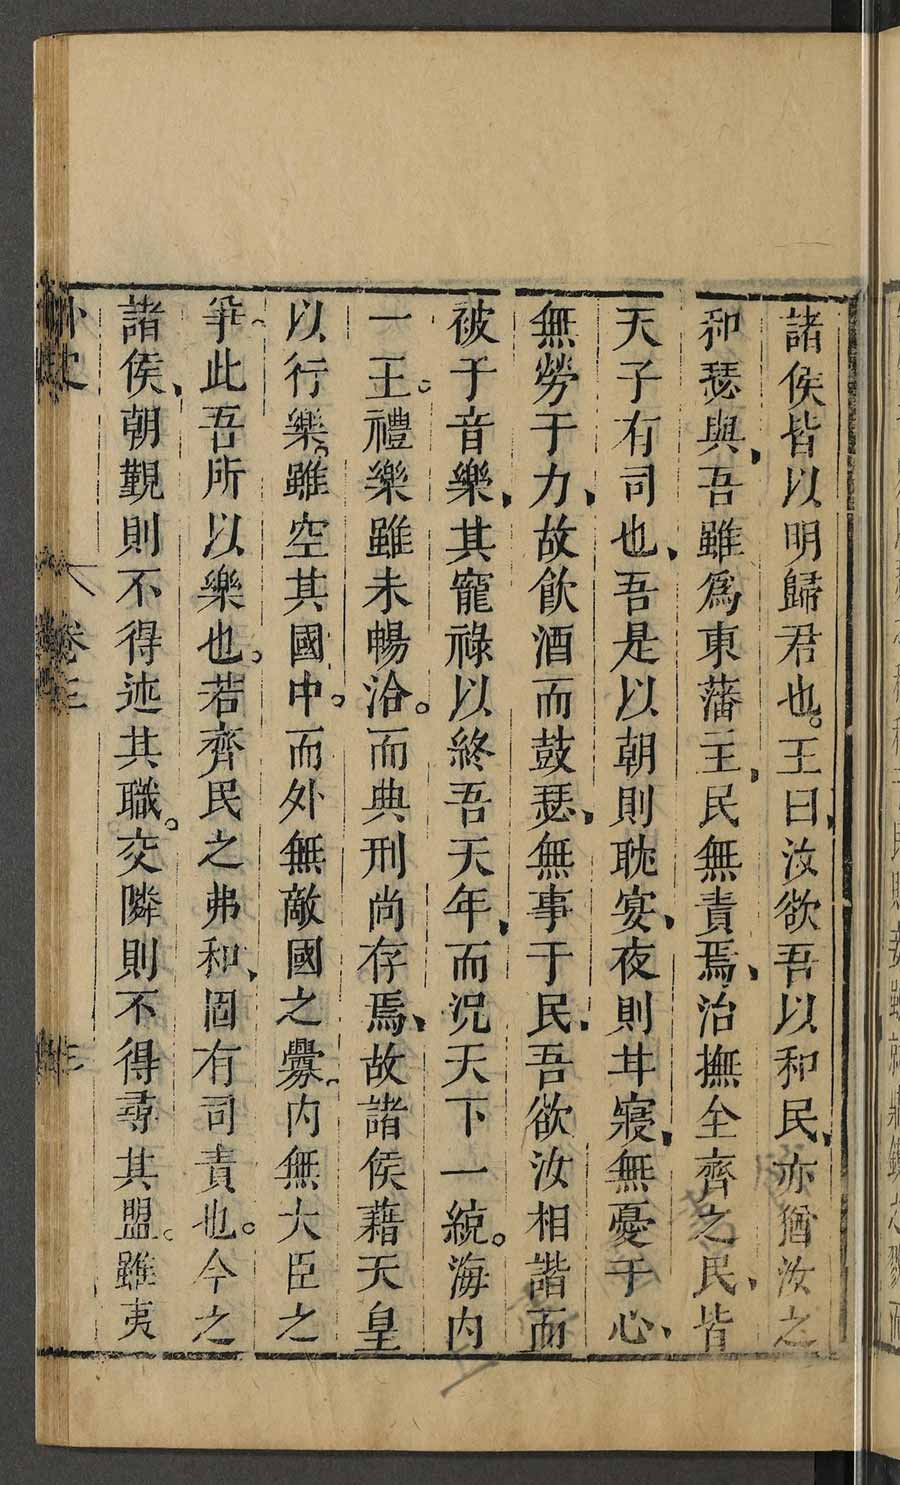 諸侯皆以明歸君也。王曰、汝欲吾以和民、亦猶汝之
和瑟與、吾雖爲東藩主、民無責焉、治撫全齊之民、皆
天子有司也、吾是以朝則耽宴、夜則甘寢、無憂于心、
無勞于力、故飲酒而鼓瑟、無事于民、吾欲汝相諧而
被于音樂、其寵祿以終吾天年、而況天下一統。海内
一王。禮樂雖未暢洽。而典刑尚存焉、故諸侯藉天皇
以行樂。雖空其國中。而外無敵國之釁、内無大臣之
爭、此吾所以樂也。若齊民之弗和、固有司責也。今之
諸侯、朝觀則不得述其職。交隣則不得尋其盟。雖夷
外史 卷三